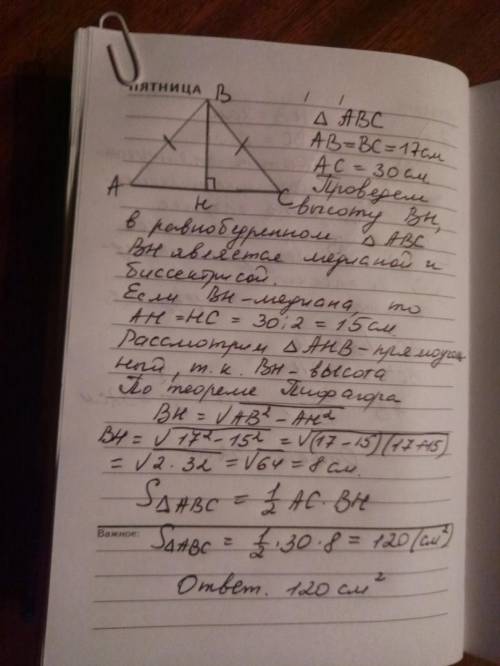 ПЯТНИЦА
B
A
H
C
Δ ABC
AB=BC=17см
AC=30см
Проведем
высоту BH,
в равнобедренном Δ ABC
BH является медианой и
биссектрисой.
Если BH-медиана, то
AH=HC=30:2=15см
Рассмотрим Δ AHB-прямоуголь
ный, т.к. BH-высота
По теореме Пифагора
BH=√AB²-AH²
BH=√17²-15²=√(17-15)(17+15)
=√2·32=√64=8см.
S△ABC=½AC·BH
Важное:
S△ABC=½·30·8=120(см²)
Ответ. 120см²